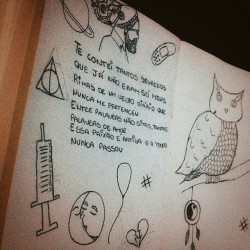 TE CONTEI TANTOS SEGREDOS
QUE JÁ NÃO ERAM SÓ MEUS
RIMAS DE UM VELHO DIÁRIO QUE
NUNCA ME PERTENCEU
ENTRE PALAVRAS NÃO DITAS, TANTAS
PALAVRAS DE AMOR
ESSA PAIXÃO É ANTIGA E O TEMPO
NUNCA PASSOU
#
#